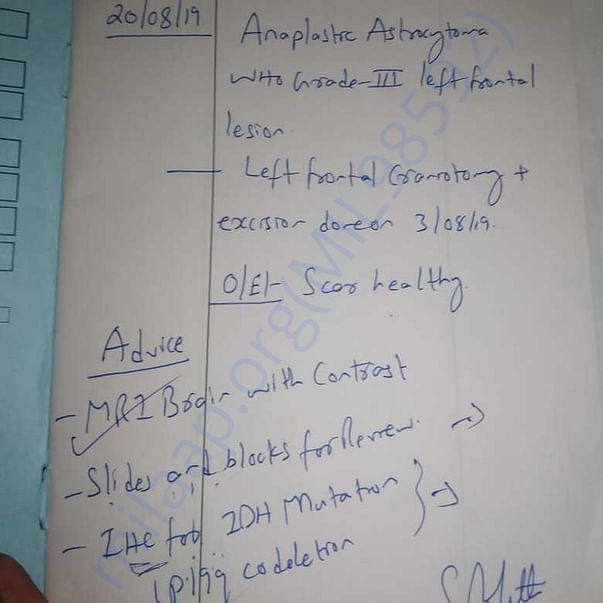 20/08/19
Anaplastic Astrocytoma
WHO Grade-III left frontal
lesion.
— Left frontal Craniotomy +
excision done on 3/08/19.
O/E/- Scar healthy.
Advice
- MRI Brain with Contrast
- Slides and blocks for Review. →
- IHC for IDH Mutation } →
1p/19q codeletion
milaap.org(MIL_98592)